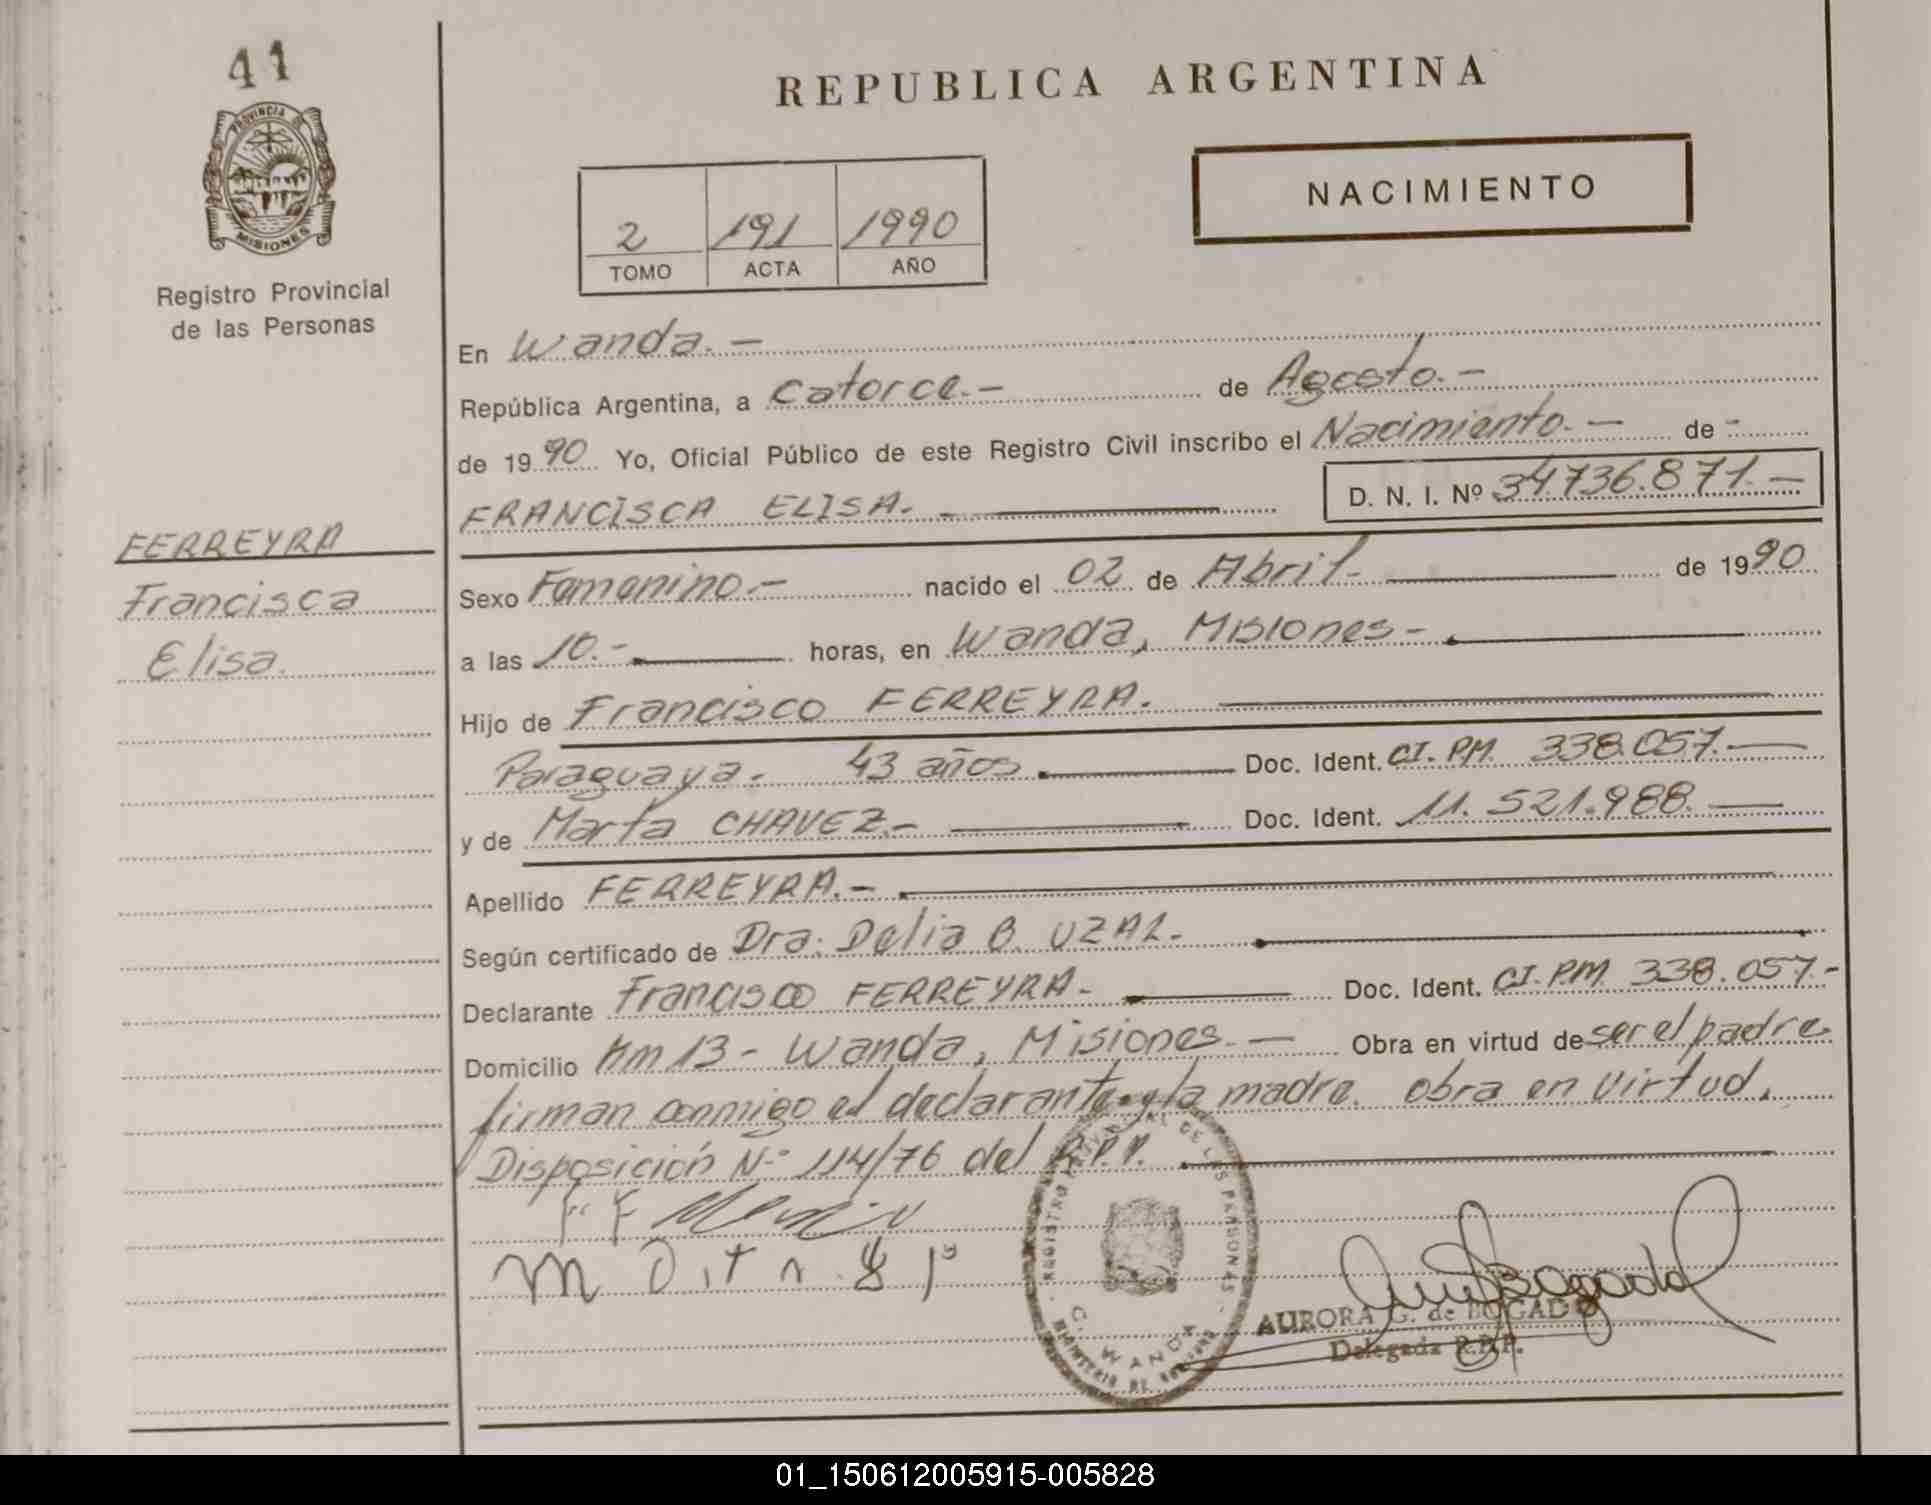 41
PROVINCIA DE
MISIONES
Registro Provincial
de las Personas
REPUBLICA ARGENTINA
NACIMIENTO
2 191 1990
TOMO ACTA AÑO
En Wanda.-
República Argentina, a Catorce.- de Agosto.-
de 1990 Yo, Oficial Público de este Registro Civil inscribo el Nacimiento.- de -
FRANCISCA ELISA.
D. N. I. Nº 34.736.871.-
FERREYRA
Francisca
Elisa.
Sexo Femenino.- nacido el 02 de Abril- de 1990
a las 10.- horas, en Wanda, Misiones-.
Hijo de Francisco FERREYRA.
Paraguaya. 43 años. Doc. Ident. CI. PM. 338.057.-
y de Marta CHAVEZ.- Doc. Ident. 11.521.988.-
Apellido FERREYRA.-
Según certificado de Dra. Delia B. UZAL.-
Declarante Francisco FERREYRA- Doc. Ident. CI. P.M. 338.057.-
Domicilio Km 13- Wanda, Misiones.- Obra en virtud de ser el padre
firman conmigo el declarante y la madre. obra en virtud.
Disposición Nº 114/76 del R.P.P.
REGISTRO PROVINCIAL DE LAS PERSONAS
C. WANDA
AURORA G. de BOGADO
Delegada R.P.P.
01_150612005915-005828